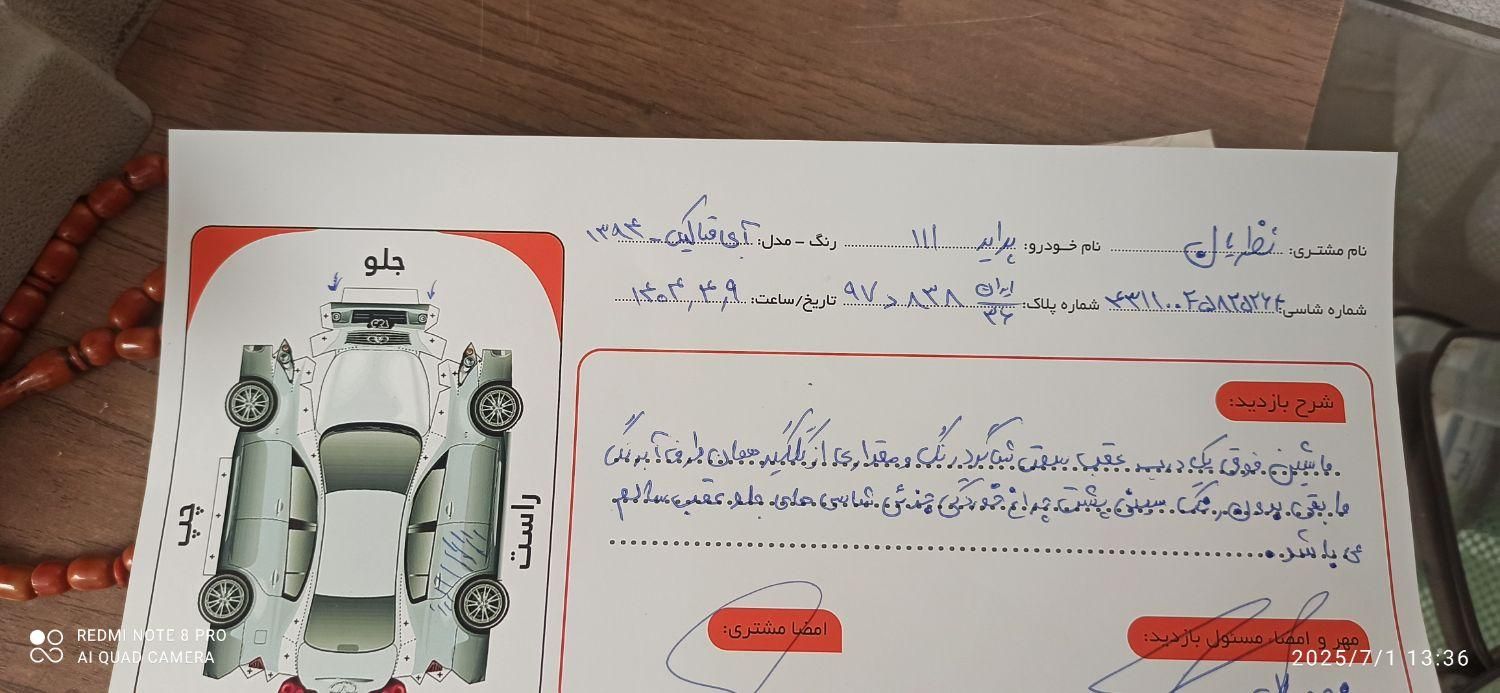 نام مشتری: نظریان نام خودرو: پراید ۱۱۱ رنگ – مدل: آبی متالیک - ۱۳۹۴
شماره شاسی: شماره پلاک: ایران ۳۶ ۸۳۸ د ۹۷ تاریخ/ساعت: ۱۴۰۴,۴,۹
جلو
چپ
راست
شرح بازدید:
ماشین فوق یک درب عقب سمت شاگرد رنگ و مقداری از گلگیر همان طرف آبرنگ
مابقی بدون رنگ سینی پشت چراغ خوردگی جزئی شاسی های جلو عقب سالم
می باشد
امضا مشتری:
مهر و امضاء مسئول بازدید:
REDMI NOTE 8 PRO
AI QUAD CAMERA
2025/7/1 13:36